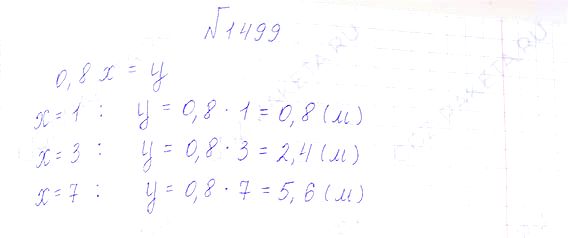 №1499
0,8x = y
x = 1 : y = 0,8 · 1 = 0,8 (м)
x = 3 : y = 0,8 · 3 = 2,4 (м)
x = 7 : y = 0,8 · 7 = 5,6 (м)